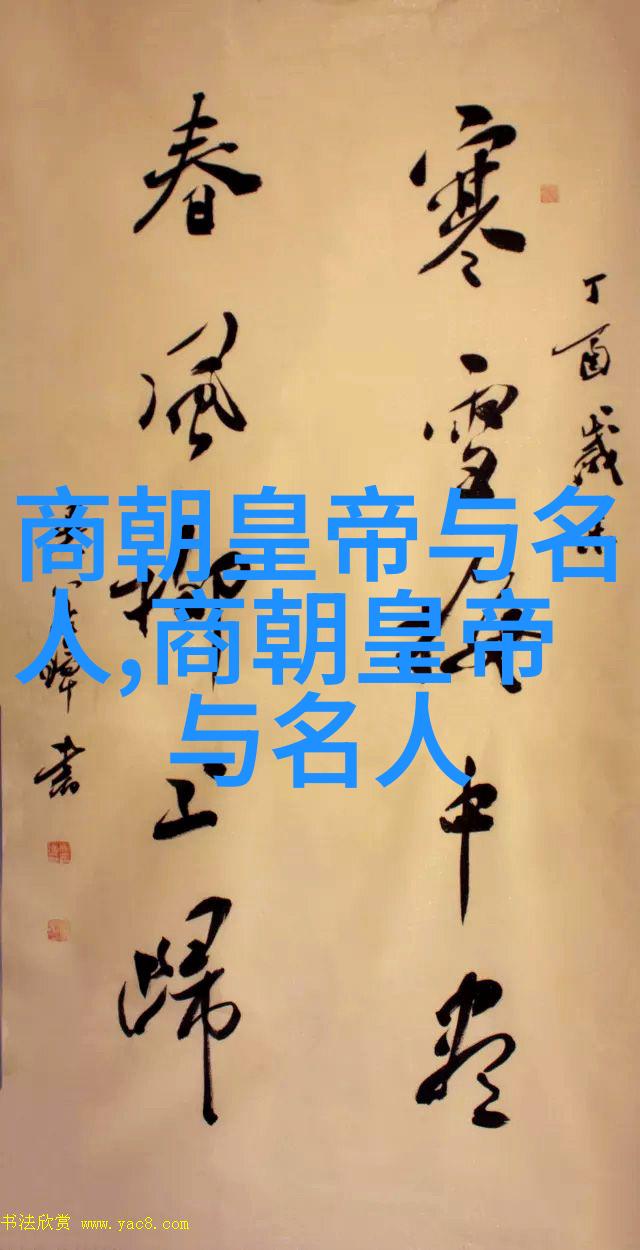 丁酉歲
寒雪梅中尽
春風柳上歸
書
商朝皇帝与名
人,商朝皇帝
与名人
书法欣赏 www.yac8.com